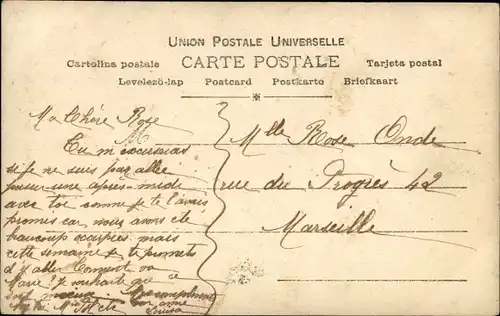 UNION POSTALE UNIVERSELLE
CARTE POSTALE
Cartolina postale
Tarjeta postal
Levelezö-lap Postcard Postkarte Briefkaart
Ma Chère Rose
Tu m'excuseras
si je ne suis pas allée
passer une après-midi
avec toi comme je te l'avais
promis car nous avons été
beaucoup occupées mais
cette semaine je te promets
d'y aller Comment va
Marie? Je souhaite que
soit mieux
Mes compliments
ton amie
Louisa
Melle Rose Onde
rue du Progrès 42
Marseille